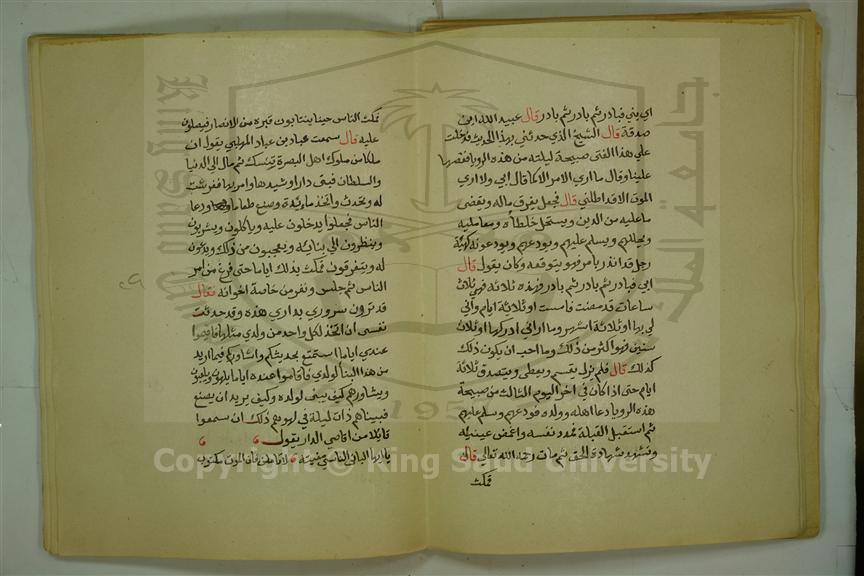 اي بني فبادر ثم بادر ثم بادر قال عبيد الله ابن
صدقة قال الشيخ الذي حدثني بهذا الحديث فدخلت
علي هذا الفتى صبيحة ليلته من هذه الرويا فقصها
علينا وقال ما اري الامر الا كما قال ابي ولا اري
الموت الا قد اظلني قال فجعل يفرق ماله ويقضي
ما عليه من الدين ويستحل خلطاه ومعامليه
ويحللهم ويسلم عليهم ويودعهم ويودعونه كهيئة
رجل قد انذر بامر فهو يتوقعه وكان يقول قال
ابي فبادر ثم بادر ثم بادر فهذه ثلاثة فهي ثلاث
ساعات قد مضت فامست او ثلاثة ايام واني
لي بها او ثلاثة اشهر وما اراني ادركها او ثلاث
سنين فهو اكثر من ذلك وما احب ان يكون ذلك
كذلك قال فلم يزل يقسم ويعطي ويتصدق ثلاثة
ايام حتى اذا كان في اخر اليوم الثالث من صبيحة
هذه الرويا دعا اهله وولده فودعهم وسلم عليهم
ثم استقبل القبلة فمدد نفسه واغمض عينيه
وتشهد شهادة الحق ثم مات رحمه الله تعالى قال
فمكث
فمكث الناس حينا ينتابون قبره من الانصار فيصلون
عليه قال سمعت عباد بن عباد المهلبي يقول ان
ملكا من ملوك اهل البصرة تنسك ثم مال الى الدنيا
والسلطان فبنى دارا وشيدها وامر بها ففرشت
له ونجدت واتخذ مائدة وصنع طعاما ودعا
الناس فجعلوا يدخلون عليه وياكلون ويشربون
وينظرون الي بنيانه ويعجبون من ذلك ويدعون
له ويتفرقون فمكث بذلك اياما حتى فرغ من امر
الناس ثم جلس ونفر من خاصة اخوانه فقال
قد ترون سروري بداري هذه وقد حدثت
نفسي ان اتخذ لكل واحد من ولدي مثلها فاقيموا
عندي اياما استمتع بحديثكم واشاوركم فيما اريد
من هذا البنا لولدي فاقاموا عنده اياما يلهون ويلعبون
ويشاورهم كيف يبنى لولده وكيف يريد ان يصنع
فبيناهم ذات ليلة في لهوهم ذلك ان سمعوا
قايلا من اقاصي الدار يقول
يا ايها الباني الناسي منيته لا تاملن فان الموت مكتوب